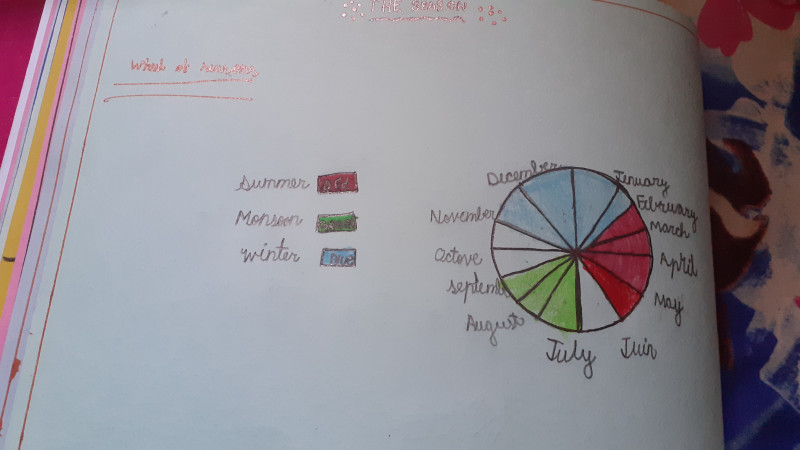 THE SEASON
Summer RED
Monsoon
Winter Blue
December
Jenuary
February
March
April
May
Juin
July
August
Septemb
Octove
November